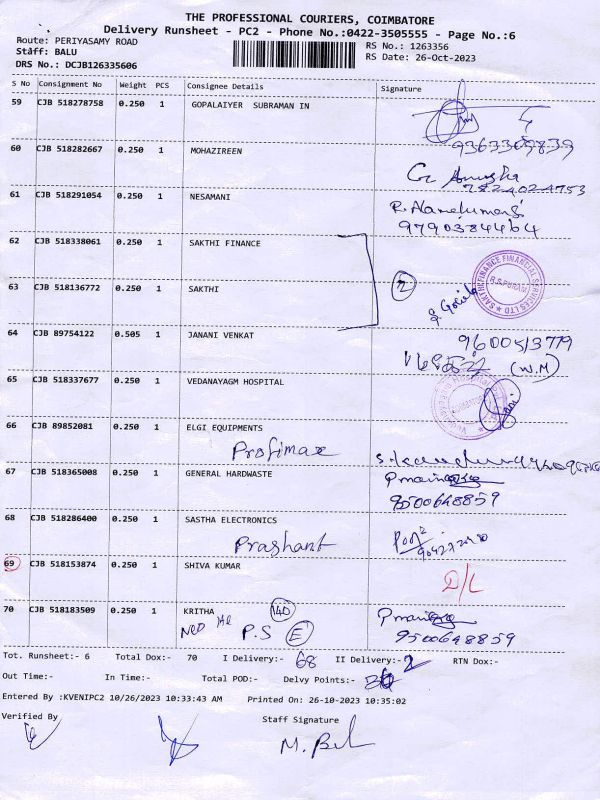 THE PROFESSIONAL COURIERS, COIMBATORE
Delivery Runsheet - PC2 - Phone No.:0422-3505555 - Page No.:6
Route: PERIYASAMY ROAD
RS No.: 1263356
Staff: BALU
RS Date: 26-Oct-2023
DRS No.: DCJB126335606
S No Consignment No Weight PCS Consignee Details Signature
59 CJB 518278758 0.250 1 GOPALAIYER SUBRAMAN IN
9363309839
60 CJB 518282667 0.250 1 MOHAZIREEN
61 CJB 518291054 0.250 1 NESAMANI
9790384464
62 CJB 518338061 0.250 1 SAKTHI FINANCE
SAKTHIFINANCE FINANCIAL SERVICES LTD
R.S.PURAM
63 CJB 518136772 0.250 1 SAKTHI 2
64 CJB 89754122 0.505 1 JANANI VENKAT 9600513779
(W.M)
65 CJB 518337677 0.250 1 VEDANAYAGM HOSPITAL
66 CJB 89852081 0.250 1 ELGI EQUIPMENTS
Profimax
67 CJB 518365008 0.250 1 GENERAL HARDWASTE
9500648859
68 CJB 518286400 0.250 1 SASTHA ELECTRONICS
Prashant
69 CJB 518153874 0.250 1 SHIVA KUMAR D/L
70 CJB 518183509 0.250 1 KRITHA 140
P.S E
9500648859
Tot. Runsheet:- 6 Total Dox:- 70 I Delivery:- 68 II Delivery:- 2 RTN Dox:-
Out Time:- In Time:- Total POD:- Delvy Points:-
Entered By :KVENIPC2 10/26/2023 10:33:43 AM Printed On: 26-10-2023 10:35:02
Verified By Staff Signature